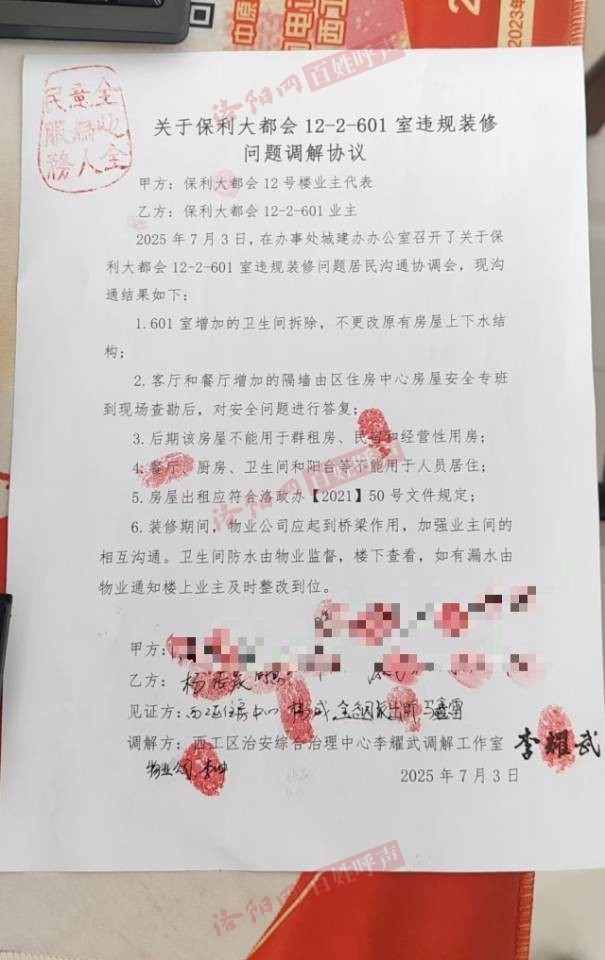 中原
电
西工
2023年
洛阳网 百姓呼声
民意全
服為心
務人全
关于保利大都会12-2-601室违规装修
问题调解协议
甲方：保利大都会12号楼业主代表
乙方：保利大都会12-2-601业主
2025年7月3日，在办事处城建办办公室召开了关于保
利大都会12-2-601室违规装修问题居民沟通协调会，现沟
通结果如下：
1.601室增加的卫生间拆除，不更改原有房屋上下水结
构；
2.客厅和餐厅增加的隔墙由区住房中心房屋安全专班
到现场查勘后，对安全问题进行答复；
3.后期该房屋不能用于群租房、民宿和经营性用房；
4.餐厅、厨房、卫生间和阳台等不能用于人员居住；
洛阳网 百姓呼声
5.房屋出租应符合洛政办【2021】50号文件规定；
6.装修期间，物业公司应起到桥梁作用，加强业主间的
相互沟通。卫生间防水由物业监督，楼下查看，如有漏水由
物业通知楼上业主及时整改到位。
甲方：
乙方：杨
见证方：西工住房中心
调解方：西工区治安综合治理中心李耀武调解工作室 李耀武
物业公司
2025年7月3日
洛阳网 百姓呼声